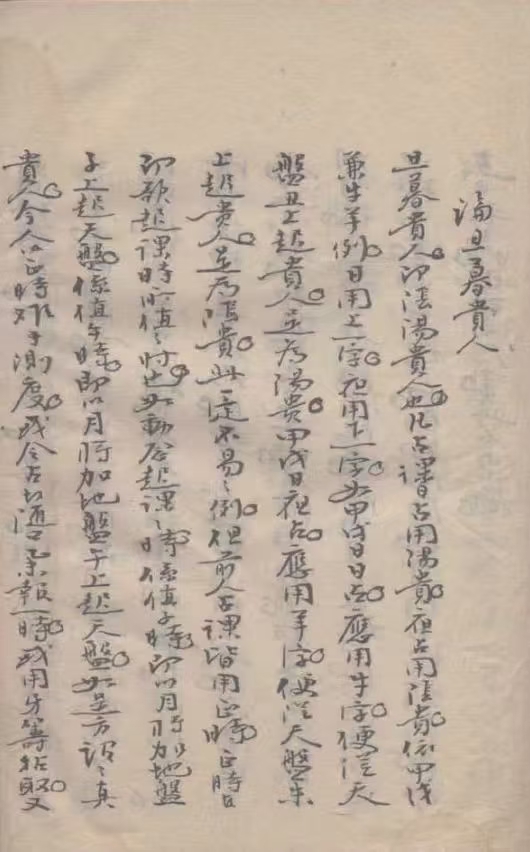 論旦暮貴人
旦暮貴人即陰陽貴人也凡占課日占用陽貴夜占用陰貴依甲戊
兼牛羊例日用上一字夜用下一字如甲戊日日占應用牛字便從天
盤丑上起貴人是為陽貴甲戊日夜占應用羊字便從天盤未
上起貴人是為陰貴此一定不易之例但前人占課皆用正時正時者
即欲起課時所值之時也如動念起課之時係值子時即以月將加地盤
子上起天盤係值午時即以月將加地盤午上起天盤如是方謂之真
貴人今人以正時難于測度或令占者隨口報一時或用牙籌拈取